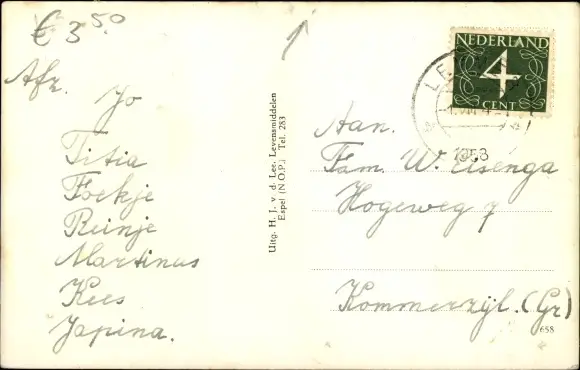 € 3 50
Afz.
Jo
Titia
Foekje
Reinje
Martinus
Kees
Japina.
Uitg. H. J. v. d. Lee, Levensmiddelen
Espel (N.O.P.) Tel. 283
NEDERLAND
4
CENT
1958
Aan.
Fam. W. Elsenga
Hogeweg 7
Kommerzijl. (Gr)
658